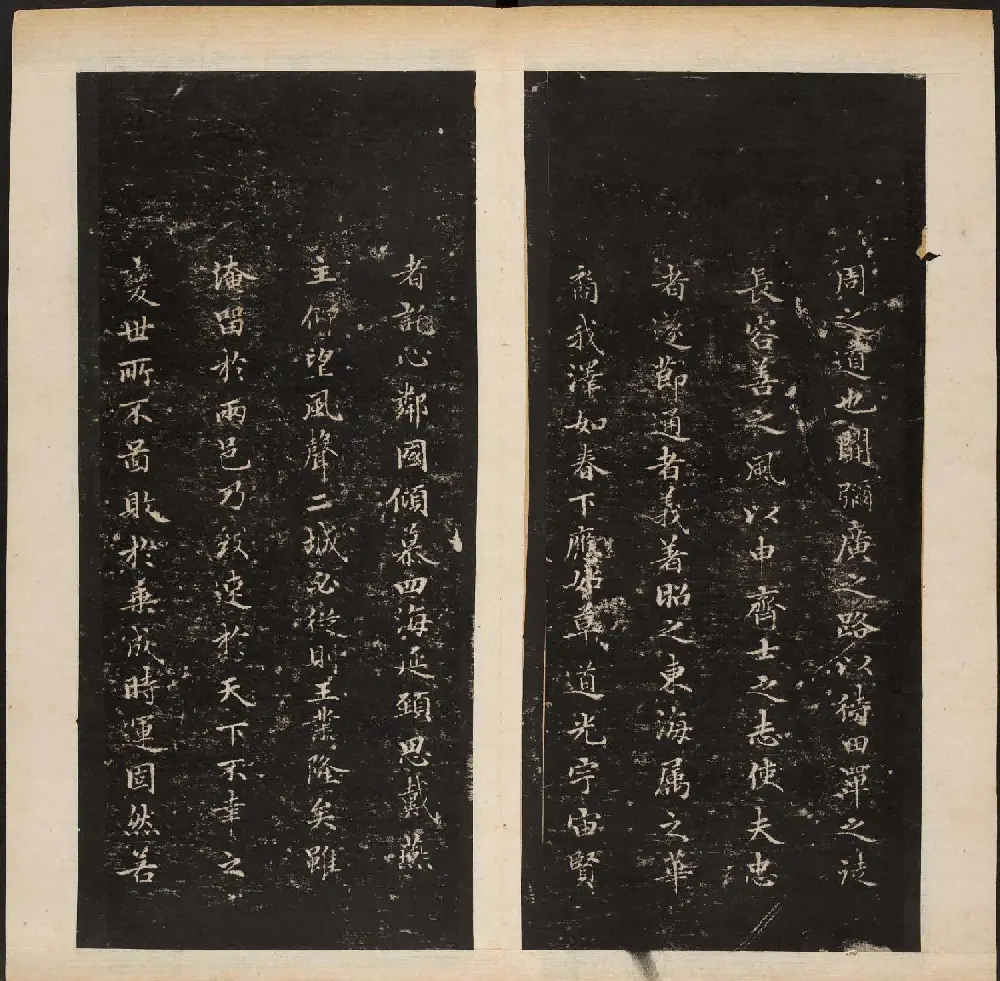 周之道也開彌廣之路以待田單之徒
長容善之風以申齊士之志使夫忠
者遂節通者義著昭之東海属之華
裔我澤如春下應如草道光宇宙賢
者託心鄰國傾慕四海延頸思戴燕
主仰望風聲二城必從則王業隆矣雖
淹留於兩邑乃致速於天下不幸之
變世所不啚敗於垂成時運固然若